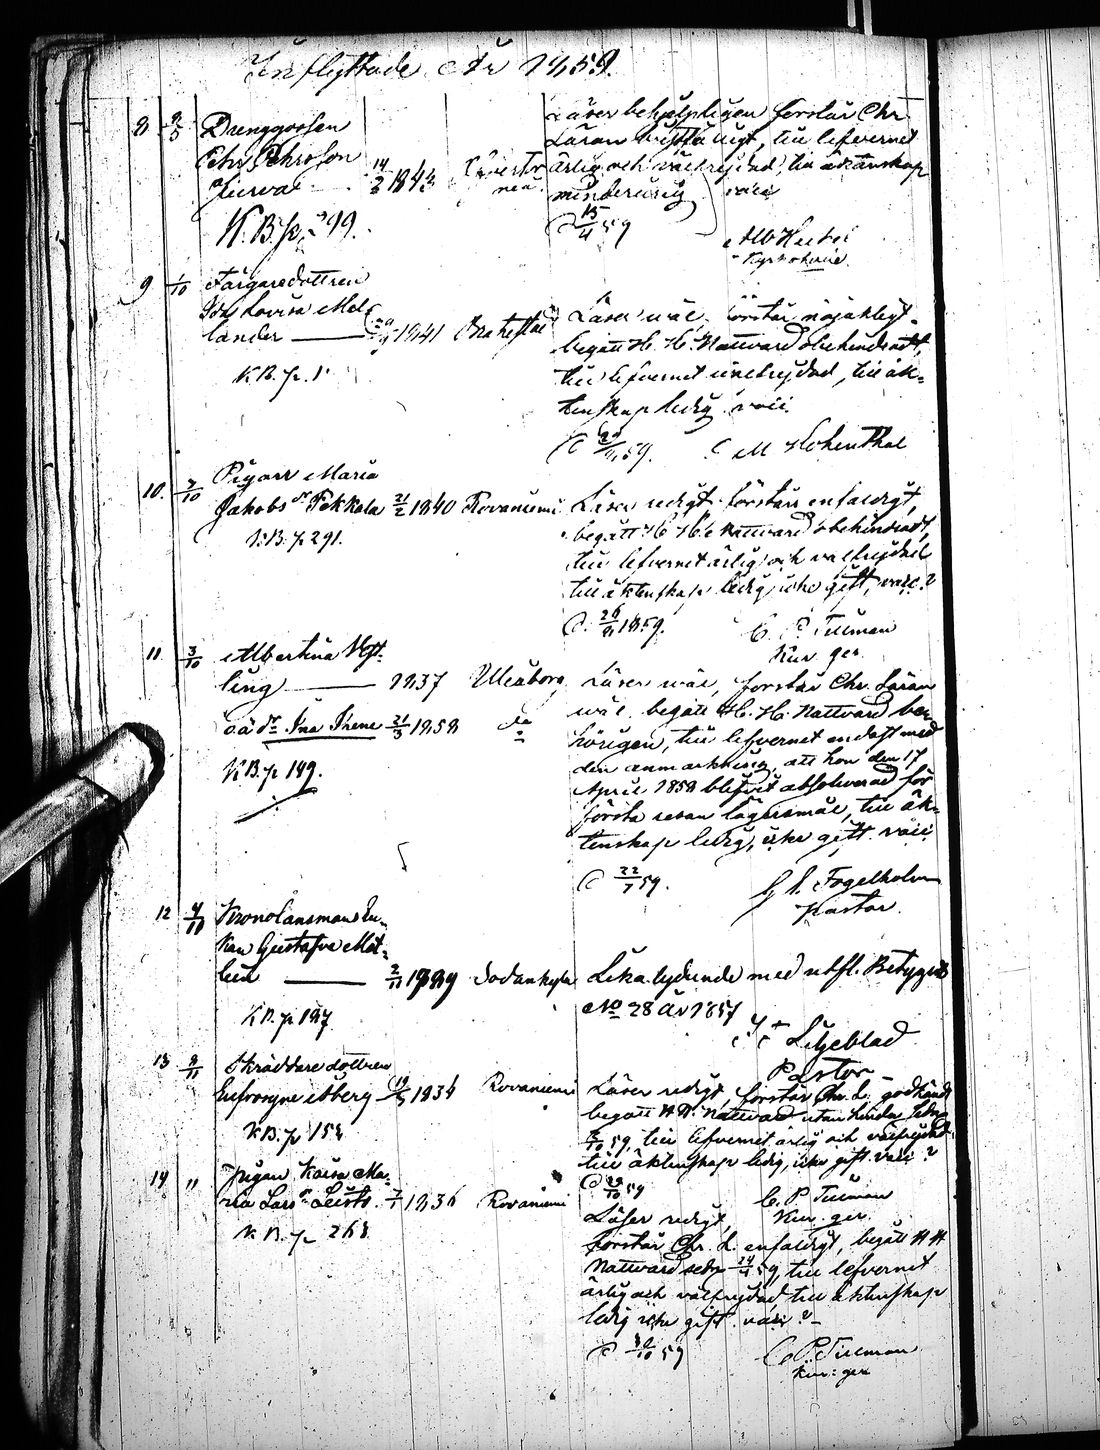 Inflyttade År 1859.
8 9/5 Drenggossen
Pehr Pehrsson
14/2 1843
K.B. p. 299.
Läser behjelpligen förstår Chr.
Läran till lefvernet
ärlig och välfrejdad, till äktenskap
minderårig vare
D 15/4 59
9 1/10 Färgaredottren
Ida Lovisa Me-
lander 1841 Brahestad
K.B. p. 1
Läser wäl, förstår nöjaktigt,
begått H. H. Nattvard obehindradt,
till lefvernet välfrejdad, till äk-
tenskap ledig vare.
D 59. C M Hohenthal
10. 2/10 Pigan Maria
Jakobs dr Pekkala 21/2 1840 Rovaniemi
K.B. p 291.
Läser redigt, förstår enfaldigt,
begått H. H:s Nattvard obehindradt,
till lefvernet ärlig och välfrejdad
till äktenskap ledig, icke gift, vare?
D. 26/9 1859.
C. P. Tuliman
Kur. ger.
11. 3/10 Albertina
ling 1837 Uleåborg
o.ä dr Ina Irene 21/3 1858 do
K.B. p 149.
Läser wäl, förstår Chr. Läran
wäl, begått H. H. Nattvard be-
hörigen, till lefvernet endast med
den anmärkning, att hon den 17
April 1858 blifvit absolverad för
första resan lägersmål, till äk-
tenskap ledig, icke gift, vare
D 22/7 59. Fogelholm
Pastor.
12 4/10 Kronolänsmans En-
kan Gustafva Me-
lin Sodankylä
K.B. p 187
Lika lydande med utfl. Betyget
No 28 År 1857
Liljeblad
Pastor
13 8/11 Skräddaredottren
Eufrosyne Åberg 1834 Rovaniemi
K.B. p 152
Läser redigt, förstår Chr. L. godkändt
begått H.H. Nattvard utan hinder
59, till lefvernet ärlig och välfrejdad,
till äktenskap ledig, icke gift vare?
D 29/10 59
C. P. Tuliman
Kur. ger.
14 " Pigan Kaisa Ma-
ria Lars dr 1836 Rovaniemi
K.B. p 268
Läser redigt,
förstår Chr. L. enfaldigt, begått H H
Nattvard 59, till lefvernet
ärlig och välfrejdad, till äktenskap
ledig icke gift vare?
D 30/10 59 C. P. Tuliman
Kur: ger